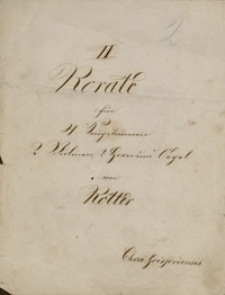 2
II
Rorate
für
4 Singstimmen
2 Violinen, 2 Horn und Orgel
von
Kotter
Chori